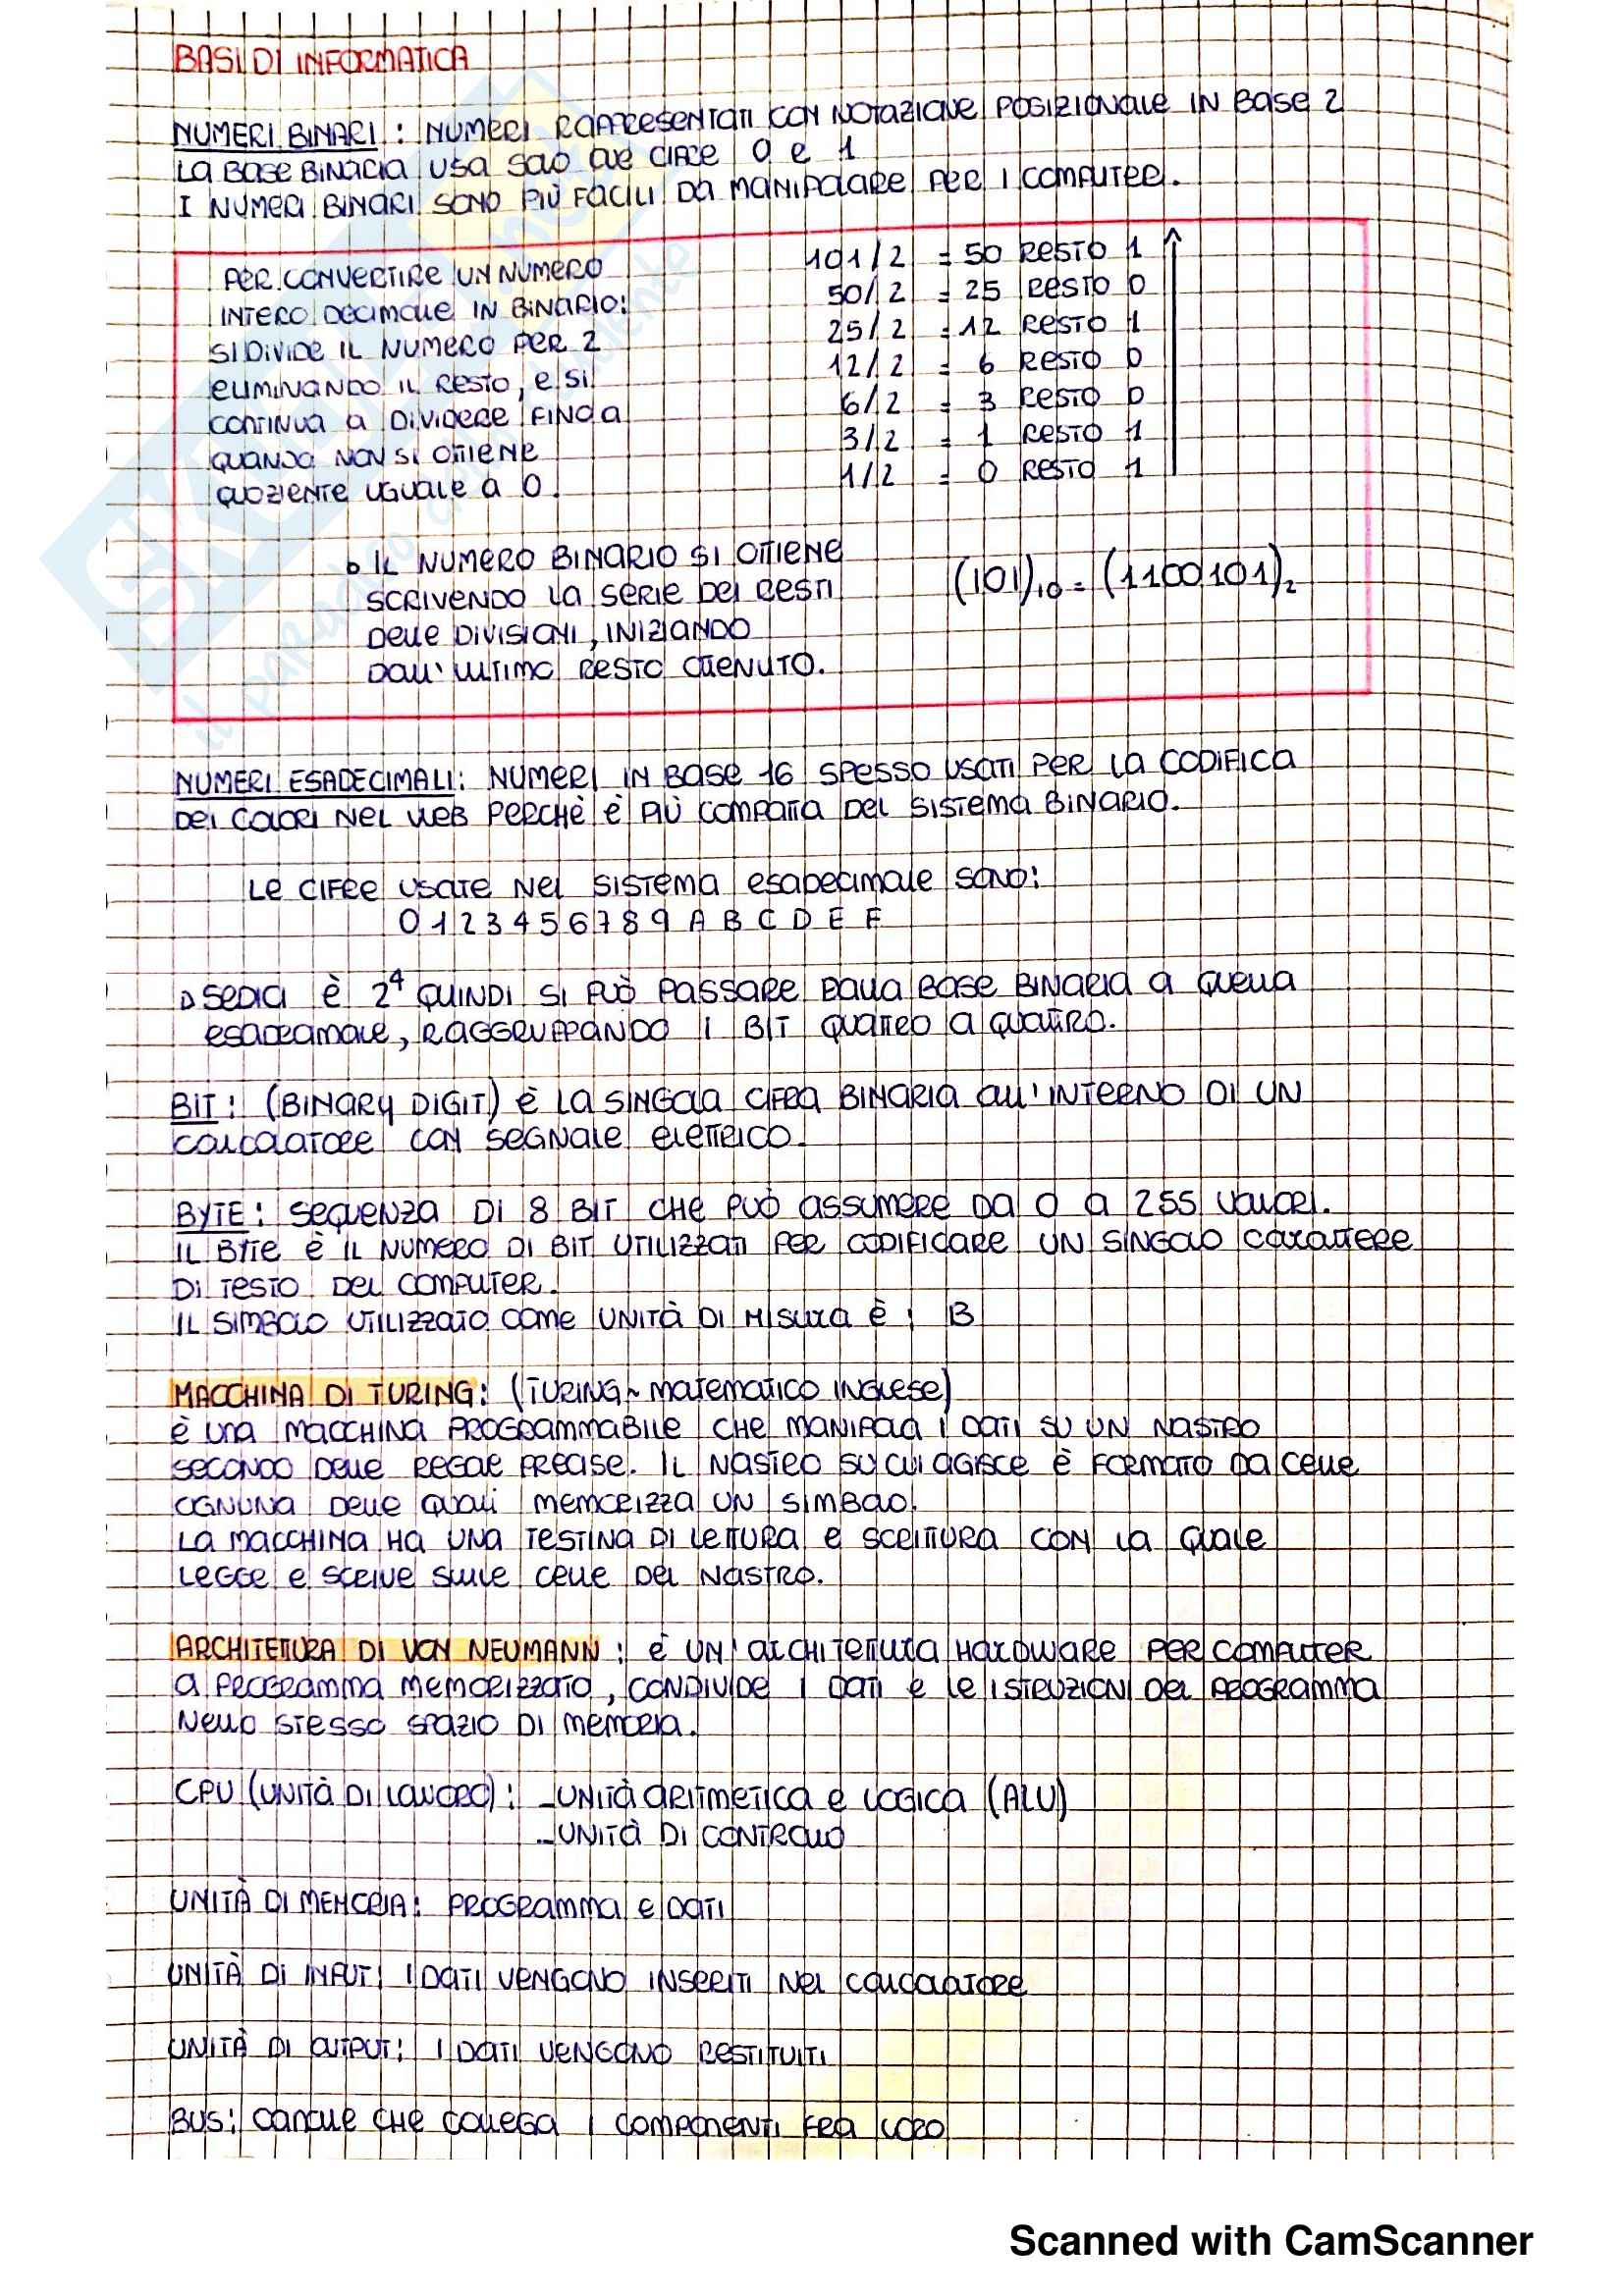 BASI DI INFORMATICA
NUMERI BINARI: NUMERI RAPPRESENTATI CON NOTAZIONE POSIZIONALE IN BASE 2
LA BASE BINARIA USA SOLO DUE CIFRE 0 e 1
I NUMERI BINARI SONO PIÙ FACILI DA MANIPOLARE PER I COMPUTER.
PER CONVERTIRE UN NUMERO
INTERO DECIMALE IN BINARIO:
SI DIVIDE IL NUMERO PER 2
ELIMINANDO IL RESTO, E SI
CONTINUA A DIVIDERE FINO A
QUANDO NON SI OTTIENE
QUOZIENTE UGUALE A 0.
101/2 = 50 RESTO 1
50/2 = 25 RESTO 0
25/2 = 12 RESTO 1
12/2 = 6 RESTO 0
6/2 = 3 RESTO 0
3/2 = 1 RESTO 1
1/2 = 0 RESTO 1
IL NUMERO BINARIO SI OTTIENE
SCRIVENDO LA SERIE DEI RESTI
DELLE DIVISIONI, INIZIANDO
DALL'ULTIMO RESTO OTTENUTO.
(101)₁₀ = (1100101)₂
NUMERI ESADECIMALI: NUMERI IN BASE 16 SPESSO USATI PER LA CODIFICA
DEI COLORI NEL WEB PERCHÈ È PIÙ COMPATTA DEL SISTEMA BINARIO.
LE CIFRE USATE NEL SISTEMA ESADECIMALE SONO:
0 1 2 3 4 5 6 7 8 9 A B C D E F
SEDICI È 2⁴ QUINDI SI PUÒ PASSARE DALLA BASE BINARIA A QUELLA
ESADECIMALE, RAGGRUPPANDO I BIT QUATTRO A QUATTRO.
BIT: (BINARY DIGIT) È LA SINGOLA CIFRA BINARIA ALL'INTERNO DI UN
CALCOLATORE CON SEGNALE ELETTRICO.
BYTE: SEQUENZA DI 8 BIT CHE PUÒ ASSUMERE DA 0 A 255 VALORI.
IL BYTE È IL NUMERO DI BIT UTILIZZATI PER CODIFICARE UN SINGOLO CARATTERE
DI TESTO DEL COMPUTER.
IL SIMBOLO UTILIZZATO COME UNITÀ DI MISURA È: B
MACCHINA DI TURING: (TURING ~ MATEMATICO INGLESE)
È UNA MACCHINA PROGRAMMABILE CHE MANIPOLA I DATI SU UN NASTRO
SECONDO DELLE REGOLE PRECISE. IL NASTRO SU CUI AGISCE È FORMATO DA CELLE
OGNUNA DELLE QUALI MEMORIZZA UN SIMBOLO.
LA MACCHINA HA UNA TESTINA DI LETTURA E SCRITTURA CON LA QUALE
LEGGE E SCRIVE SULLE CELLE DEL NASTRO.
ARCHITETTURA DI VON NEUMANN: È UN'ARCHITETTURA HARDWARE PER COMPUTER
A PROGRAMMA MEMORIZZATO, CONDIVIDE I DATI E LE ISTRUZIONI DEL PROGRAMMA
NELLO STESSO SPAZIO DI MEMORIA.
CPU (UNITÀ DI LAVORO): - UNITÀ ARITMETICA E LOGICA (ALU)
- UNITÀ DI CONTROLLO
UNITÀ DI MEMORIA: PROGRAMMA E DATI
UNITÀ DI INPUT: I DATI VENGONO INSERITI NEL CALCOLATORE
UNITÀ DI OUTPUT: I DATI VENGONO RESTITUITI
BUS: CANALE CHE COLLEGA I COMPONENTI FRA LORO
Scanned with CamScanner